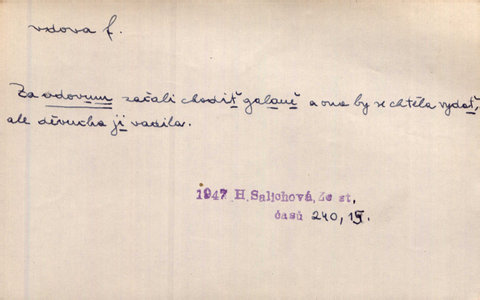 vdova f.
Za vdovum začali chodiť galaně a ona by se chtěla vydať,
ale děvucha ji vadila.
1947 H. Saljchová, Ze st.
časů 240, 15.